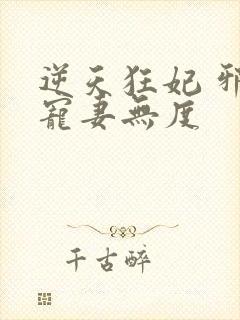 逆天狂妃 邪
寵妻無度
千古醉